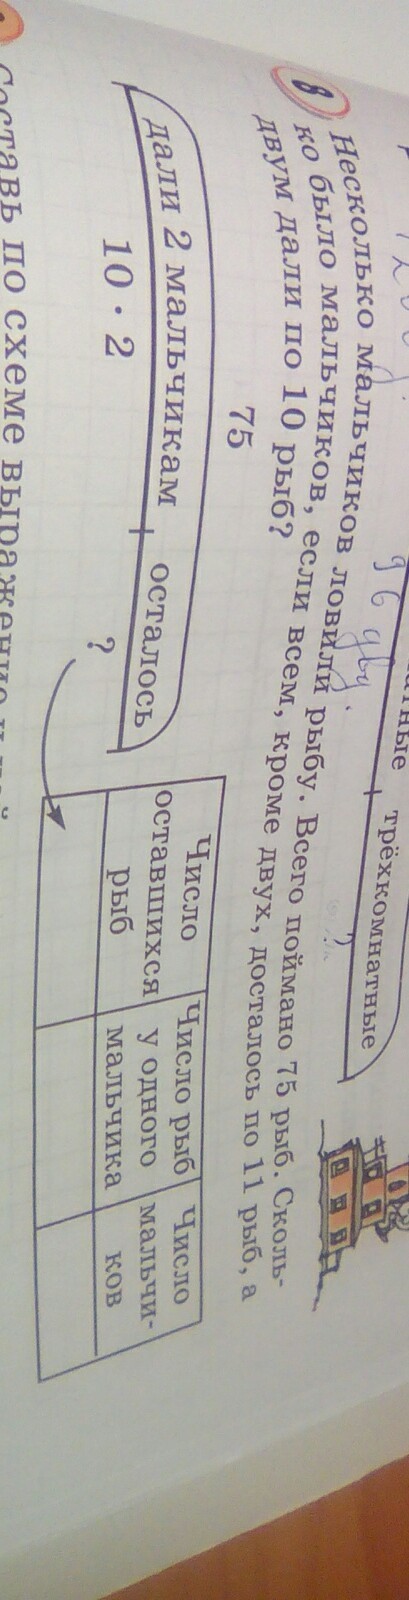 96 дву.
трёхкомнатные
?
8
Несколько мальчиков ловили рыбу. Всего поймано 75 рыб. Сколь-
ко было мальчиков, если всем, кроме двух, досталось по 11 рыб, а
двум дали по 10 рыб?
75
дали 2 мальчикам осталось
10 · 2 ?
Число оставшихся рыб
Число рыб у одного мальчика
Число мальчи-
ков
Составь по схеме выражение и